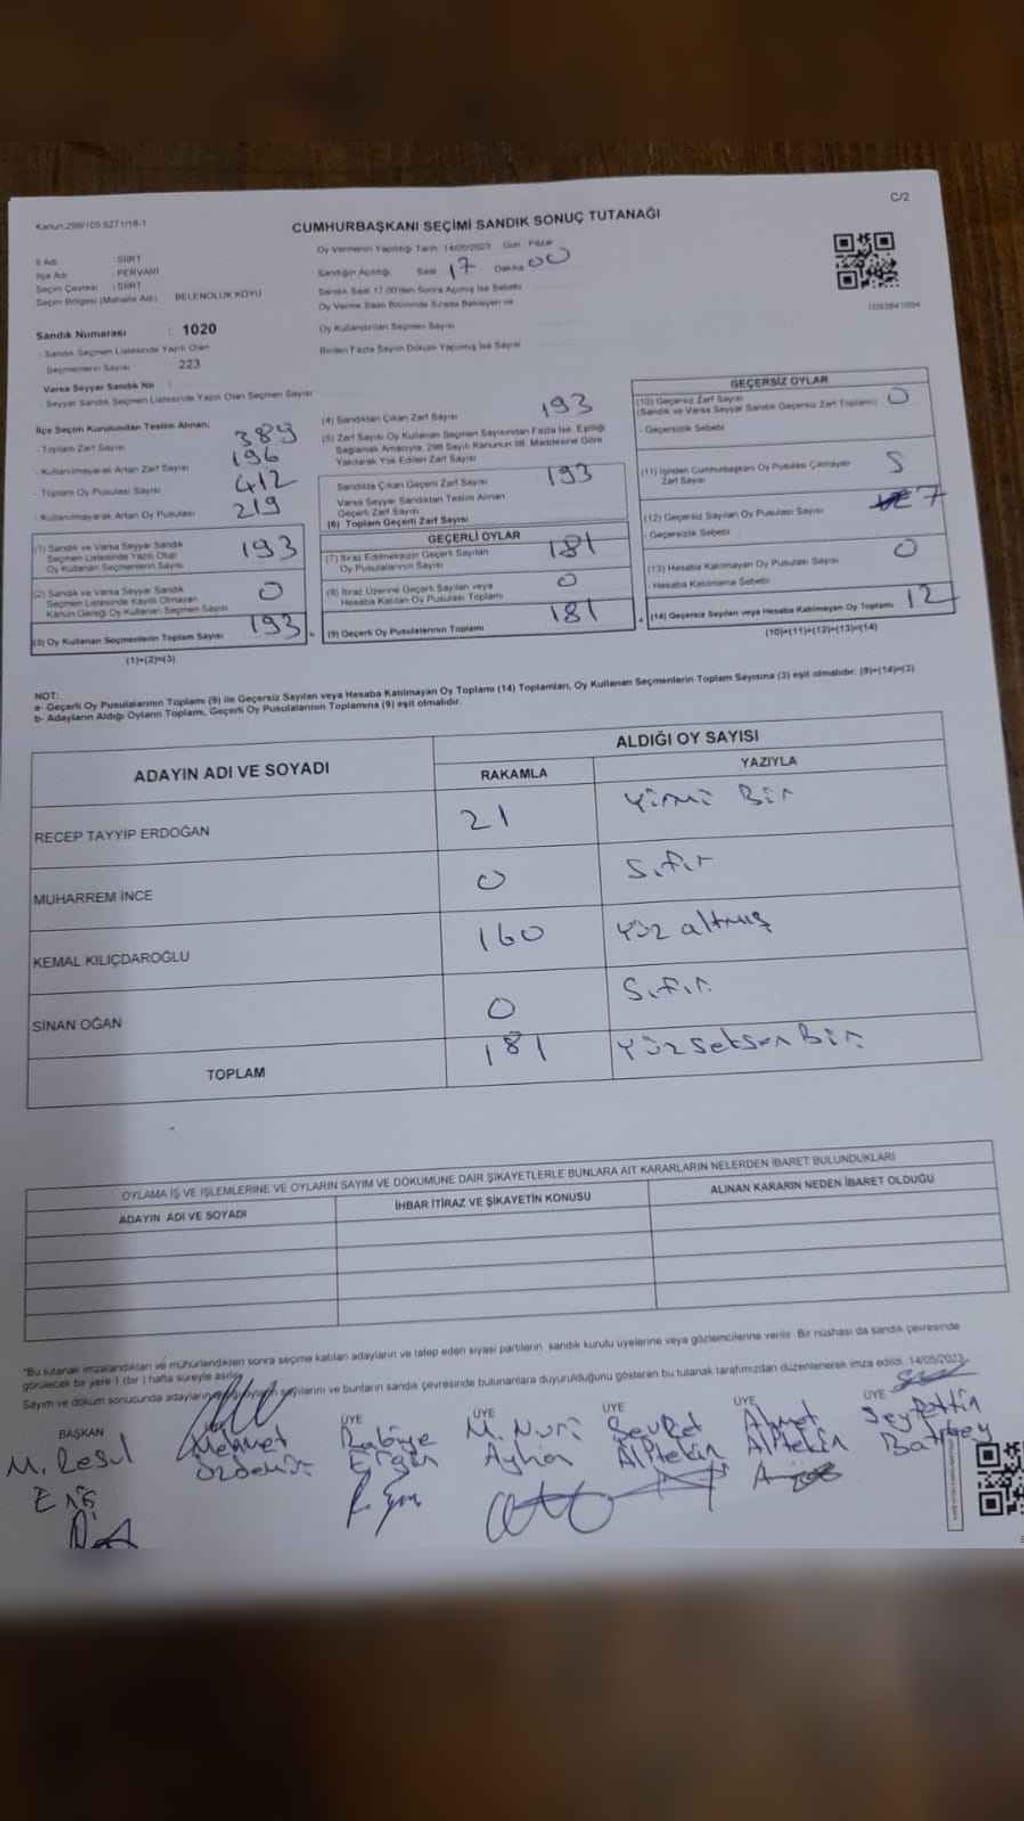 C/2
Kanun:298/105 5271/18-1
CUMHURBAŞKANI SEÇİMİ SANDIK SONUÇ TUTANAĞI
Oy Vermenin Yapıldığı Tarih 14/05/2023 Gün Pazar
İl Adı : SİİRT
İlçe Adı : PERVARİ
Seçim Çevresi : SİİRT
Seçim Bölgesi (Mahalle Adı) BELENOLUK KÖYÜ
Sandığın Açılışı Saat 17 Dakika 00
Sandık Saat 17.00'den Sonra Açılmış İse Sebebi
Oy Verme Saati Bitiminde Sırada Bekleyen ve
Oy Kullandırılan Seçmen Sayısı
Birden Fazla Sayım Döküm Yapılmış İse Sayısı
Sandık Numarası : 1020
Sandık Seçmen Listesinde Yazılı Olan
Seçmenlerin Sayısı 223
Varsa Seyyar Sandık No :
Seyyar Sandık Seçmen Listesinde Yazılı Olan Seçmen Sayısı
İlçe Seçim Kurulundan Teslim Alınan;
- Toplam Zarf Sayısı 389
- Kullanılmayarak Artan Zarf Sayısı 196
- Toplam Oy Pusulası Sayısı 412
- Kullanılmayarak Artan Oy Pusulası 219
(1) Sandık ve Varsa Seyyar Sandık
Seçmen Listesinde Yazılı Olup
Oy Kullanan Seçmenlerin Sayısı 193
(2) Sandık ve Varsa Seyyar Sandık
Seçmen Listesinde Kayıtlı Olmayan
Kanun Gereği Oy Kullanan Seçmen Sayısı 0
(3) Oy Kullanan Seçmenlerin Toplam Sayısı 193
(1)+(2)=(3)
(4) Sandıktan Çıkan Zarf Sayısı 193
(5) Zarf Sayısı Oy Kullanan Seçmen Sayısından Fazla İse, Eşitliği
Sağlamak Amacıyla, 298 Sayılı Kanunun 98. Maddesine Göre
Yakılarak Yok Edilen Zarf Sayısı
Sandıkta Çıkan Geçerli Zarf Sayısı 193
Varsa Seyyar Sandıktan Teslim Alınan
Geçerli Zarf Sayısı
(6) Toplam Geçerli Zarf Sayısı
GEÇERLİ OYLAR
(7) İtiraz Edilmeksizin Geçerli Sayılan
Oy Pusulalarının Sayısı 181
(8) İtiraz Üzerine Geçerli Sayılan veya
Hesaba Katılan Oy Pusulası Toplamı 0
(9) Geçerli Oy Pusulalarının Toplamı 181
GEÇERSİZ OYLAR
(10) Geçersiz Zarf Sayısı
(Sandık ve Varsa Seyyar Sandık Geçersiz Zarf Toplamı) 0
- Geçersizlik Sebebi
(11) İçinden Cumhurbaşkanı Oy Pusulası Çıkmayan
Zarf Sayısı 5
(12) Geçersiz Sayılan Oy Pusulası Sayısı 7
- Geçersizlik Sebebi
(13) Hesaba Katılmayan Oy Pusulası Sayısı 0
- Hesaba Katılmama Sebebi
(14) Geçersiz Sayılan veya Hesaba Katılmayan Oy Toplamı 12
(10)+(11)+(12)+(13)=(14)
NOT:
a- Geçerli Oy Pusulalarının Toplamı (9) ile Geçersiz Sayılan veya Hesaba Katılmayan Oy Toplamı (14) Toplamları, Oy Kullanan Seçmenlerin Toplam Sayısına (3) eşit olmalıdır. (9)+(14)=(3)
b- Adayların Aldığı Oyların Toplamı, Geçerli Oy Pusulalarının Toplamına (9) eşit olmalıdır.
ADAYIN ADI VE SOYADI
ALDIĞI OY SAYISI
RAKAMLA YAZIYLA
RECEP TAYYİP ERDOĞAN 21 Yirmi Bir
MUHARREM İNCE 0 Sıfır
KEMAL KILIÇDAROĞLU 160 Yüz altmış
SİNAN OĞAN 0 Sıfır
TOPLAM 181 Yüz Seksen Bir
OYLAMA İŞ VE İŞLEMLERİNE VE OYLARIN SAYIM VE DÖKÜMÜNE DAİR ŞİKAYETLERLE BUNLARA AİT KARARLARIN NELERDEN İBARET BULUNDUKLARI
ADAYIN ADI VE SOYADI İHBAR İTİRAZ VE ŞİKAYETİN KONUSU ALINAN KARARIN NEDEN İBARET OLDUĞU
"Bu tutanak imzalandıktan ve mühürlendikten sonra seçime katılan adayların ve talep eden siyasi partilerin sandık kurulu üyelerine veya gözlemcilerine verilir. Bir nüshası da sandık çevresinde
görülecek bir yere 1 (bir) hafta süreyle asılır.
Sayım ve döküm sonucunda adayların sayılarını ve bunların sandık çevresinde bulunanlara duyurulduğunu gösteren bu tutanak tarafımızdan düzenlenerek imza edildi. 14/05/2023
BAŞKAN ÜYE ÜYE ÜYE ÜYE ÜYE
M. Resul Mehmet Rabiye M. Nuri Sevket Ahmet Seyfettin
Eriş Özdemir Ergün Ayhan Alptekin Alptekin Batıbey